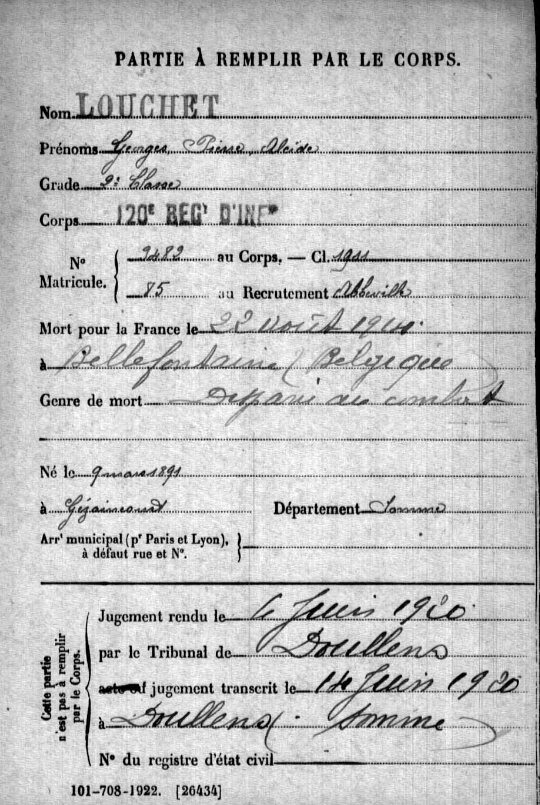 PARTIE À REMPLIR PAR LE CORPS.
Nom LOUCHET
Prénoms Georges, Pierre, Alcide
Grade 2e Classe
Corps 120E REGt D'INFie
No Matricule. { 2482 au Corps. — Cl. 1911
85 au Recrutement Abbeville
Mort pour la France le 22 août 1914
à Bellefontaine (Belgique)
Genre de mort Disparu au combat
Né le 9 mars 1891
à Gézaincourt Département Somme
Arrt municipal (pr Paris et Lyon), à défaut rue et No. }
Cette partie n'est pas à remplir par le Corps.
Jugement rendu le 4 Juin 1920
par le Tribunal de Doullens
acte ou jugement transcrit le 14 Juin 1920
à Doullens (Somme)
No du registre d'état civil
101-708-1922. [26434]